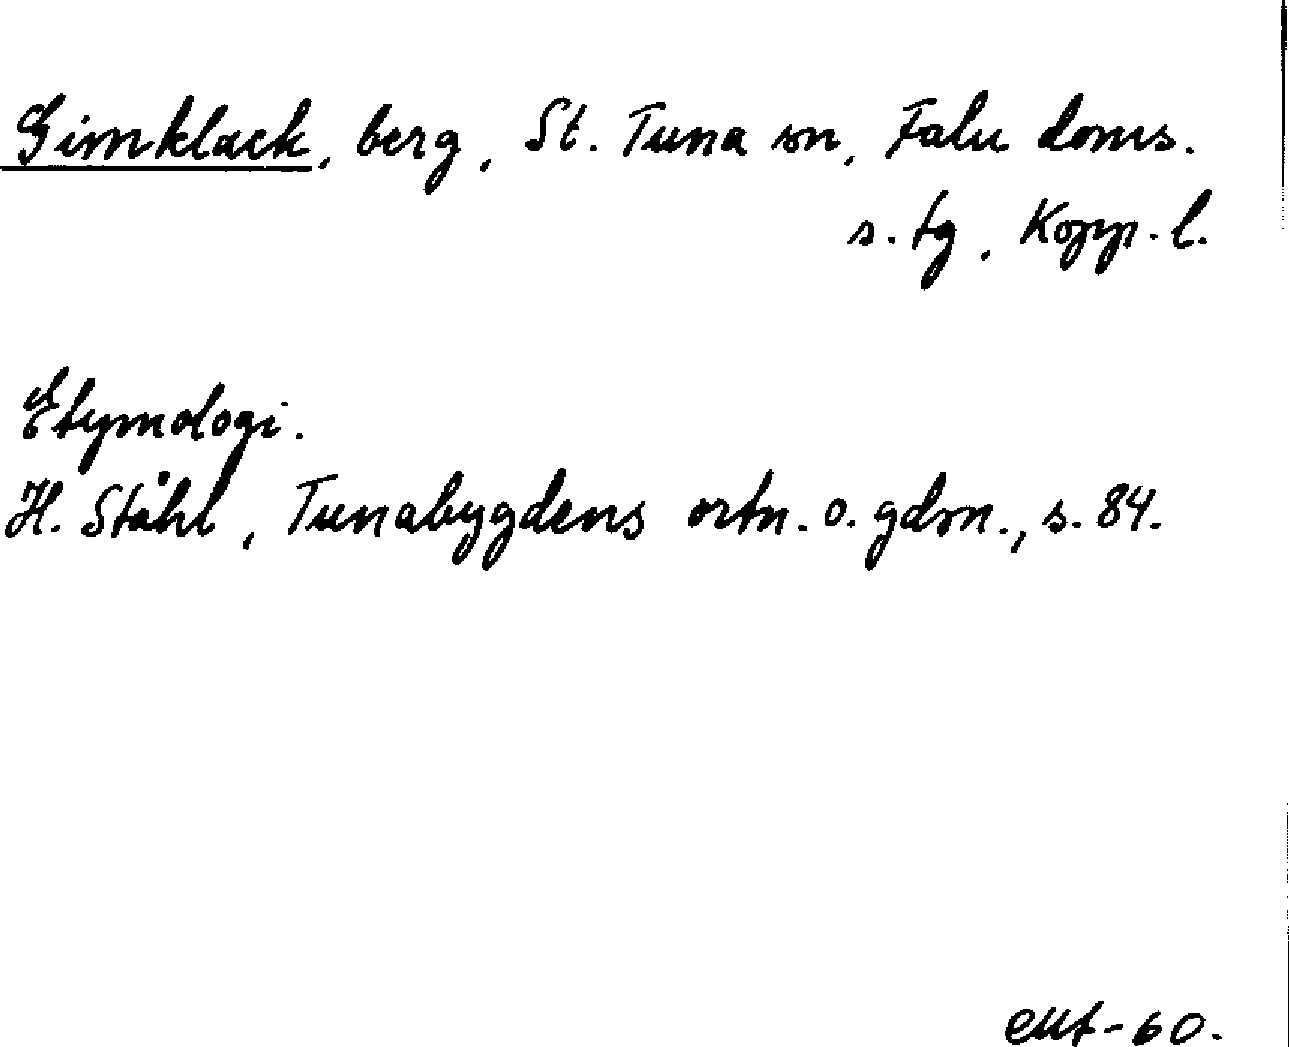 Gimklack, berg, St. Tuna sn, Falu doms.
s. tg, Kopp. l.
Etymologi.
H. Ståhl, Tunabygdens ortn. o. gdsn., s. 84.